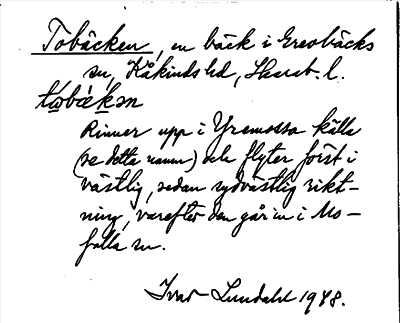 Tobäcken, en bäck i Grevbäcks
sn, Kåkinds hd, Skarab. l.
tɷ̀bɛ́kən
Rinner upp i Yremossa källa
(se detta namn) och flyter först i
västlig, sedan sydvästlig rikt-
ning, varefter den går in i Mo-
falla sn.
Ivar Lundahl 1948.